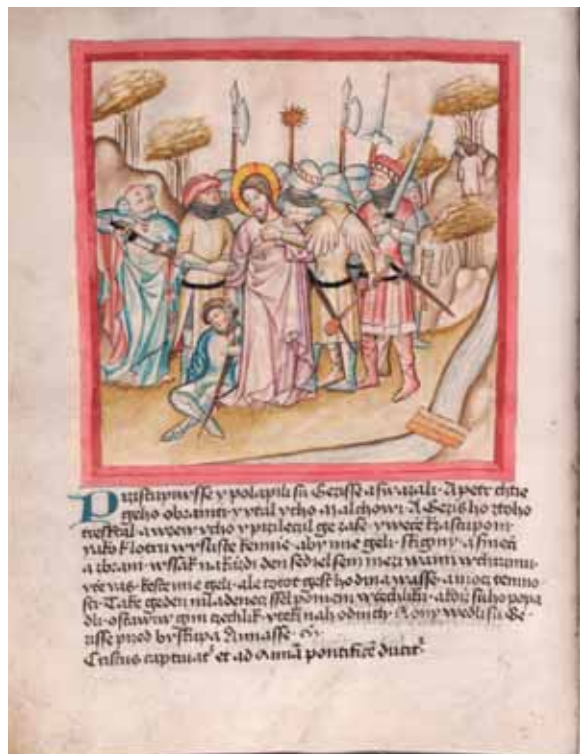 Pristupiwsse y polapili su Gezisse a swazali · A petr chtie
geho obraniti y utal ucho Malchowi · A Gezis ho ztoho
tresktal a wzew ucho y przilepil ge zase · y wece k bistupom
yako k lotru wysliste ke mnie · aby mie geli · s kigmy · a s meči
a s brani · wssak na kazdi den sediel sem mezi wami w chramu
ucze was · keste mie geli · ale totot gest hodina wasse · a moc temno
sti · Take geden mladenec ssel po niem w czechliku · a kdiz su ho popa
dli · ostawiw gim czechlik · utekl nah od nich · A ony wedli su Ge
zisse przed byskupa Annasse · 
Cristus captivat et ad Annā pontificē ducit